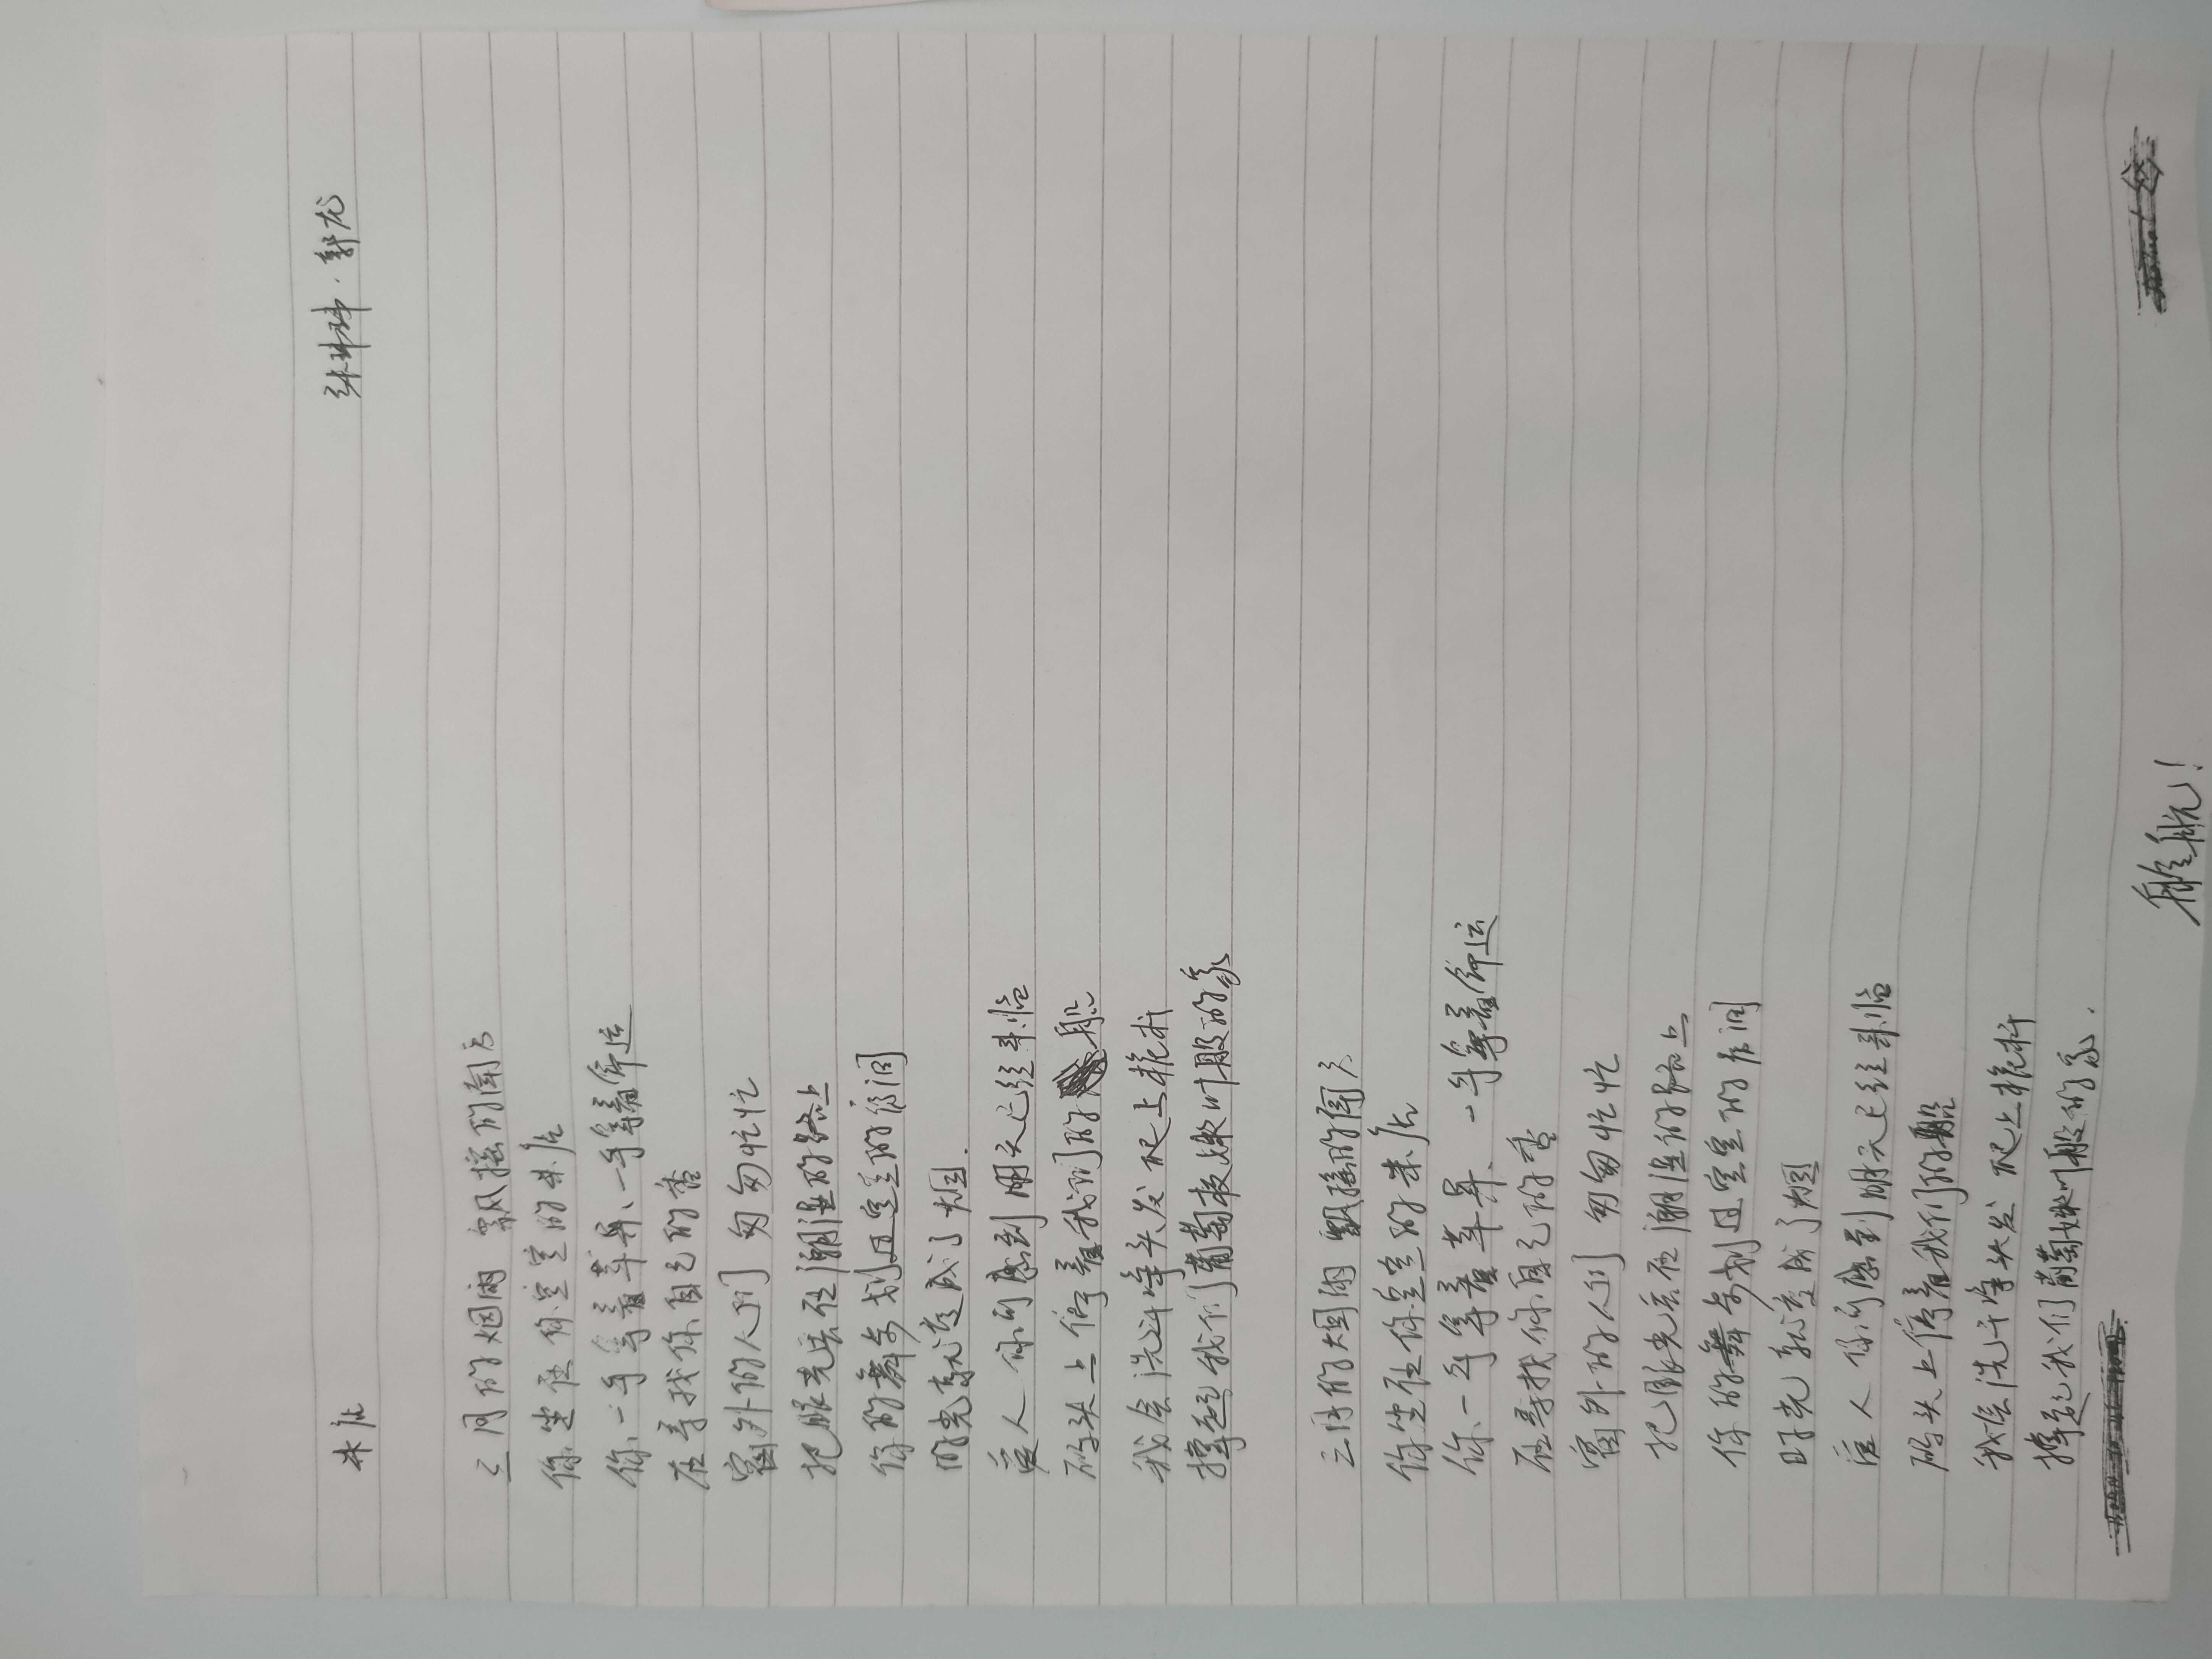 米店
张玮玮·郭龙
三月的烟雨 飘摇的南方
你坐在你空空的米店
你一手拿着苹果、一手拿着命运
在寻找你自己的香
窗外的人们 匆匆忙忙
把眼光丢在潮湿的路上
你的舞步划过空空的房间
时光就变成了烟.
爱人 你可感到 明天已经来临
码头上停着我们的船
我会洗干净头发 爬上桅杆
撑起我们葡萄枝嫩叶般的家
三月的烟雨 飘摇的南方
你坐在你空空的米店
你一手拿着苹果、一手拿着命运
在寻找你自己的香
窗外的人们 匆匆忙忙
把眼光丢在潮湿的路上
你的舞步划过空空的房间
时光就变成了烟
爱人 你可感到 明天已经来临
码头上停着我们的船
我会洗干净头发 爬上桅杆
撑起我们葡萄嫩叶般的家.
航!